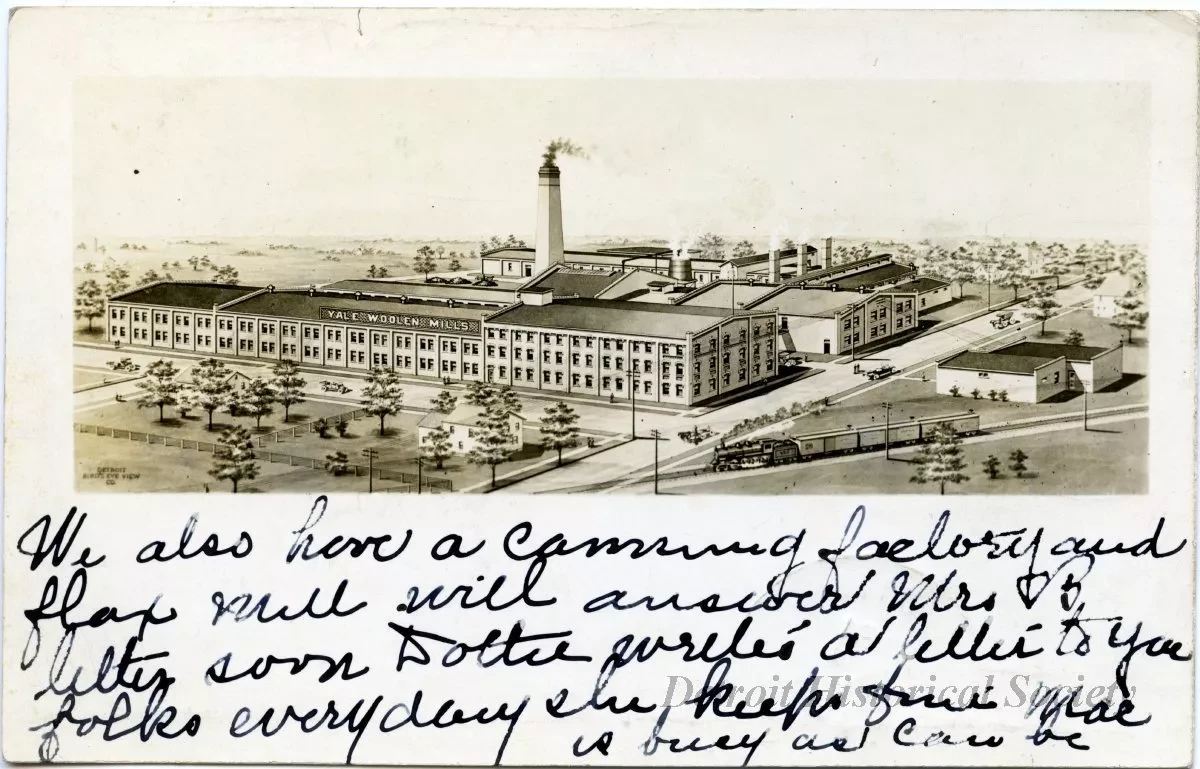 YALE WOOLEN MILLS
DETROIT
BIRDS EYE VIEW
CO.
We also have a canning factory and
flax mill will answer Mrs B
letter soon Dottie writes a letter to you
folks everyday she keeps fine Mae
is busy as can be
Detroit Historical Society